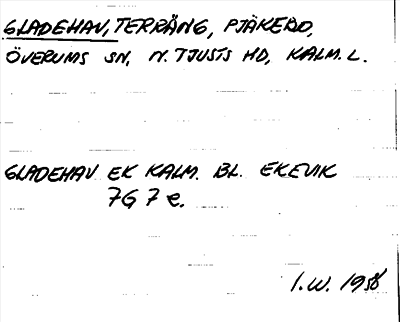 GLADEHAV, TERRÄNG, PJÄKEBO,
ÖVERUMS SN, N. TJUSTS HD, KALM. L.
GLADEHAV EK KALM. BL. EKEVIK
7G 7 e.
I.W. 1958